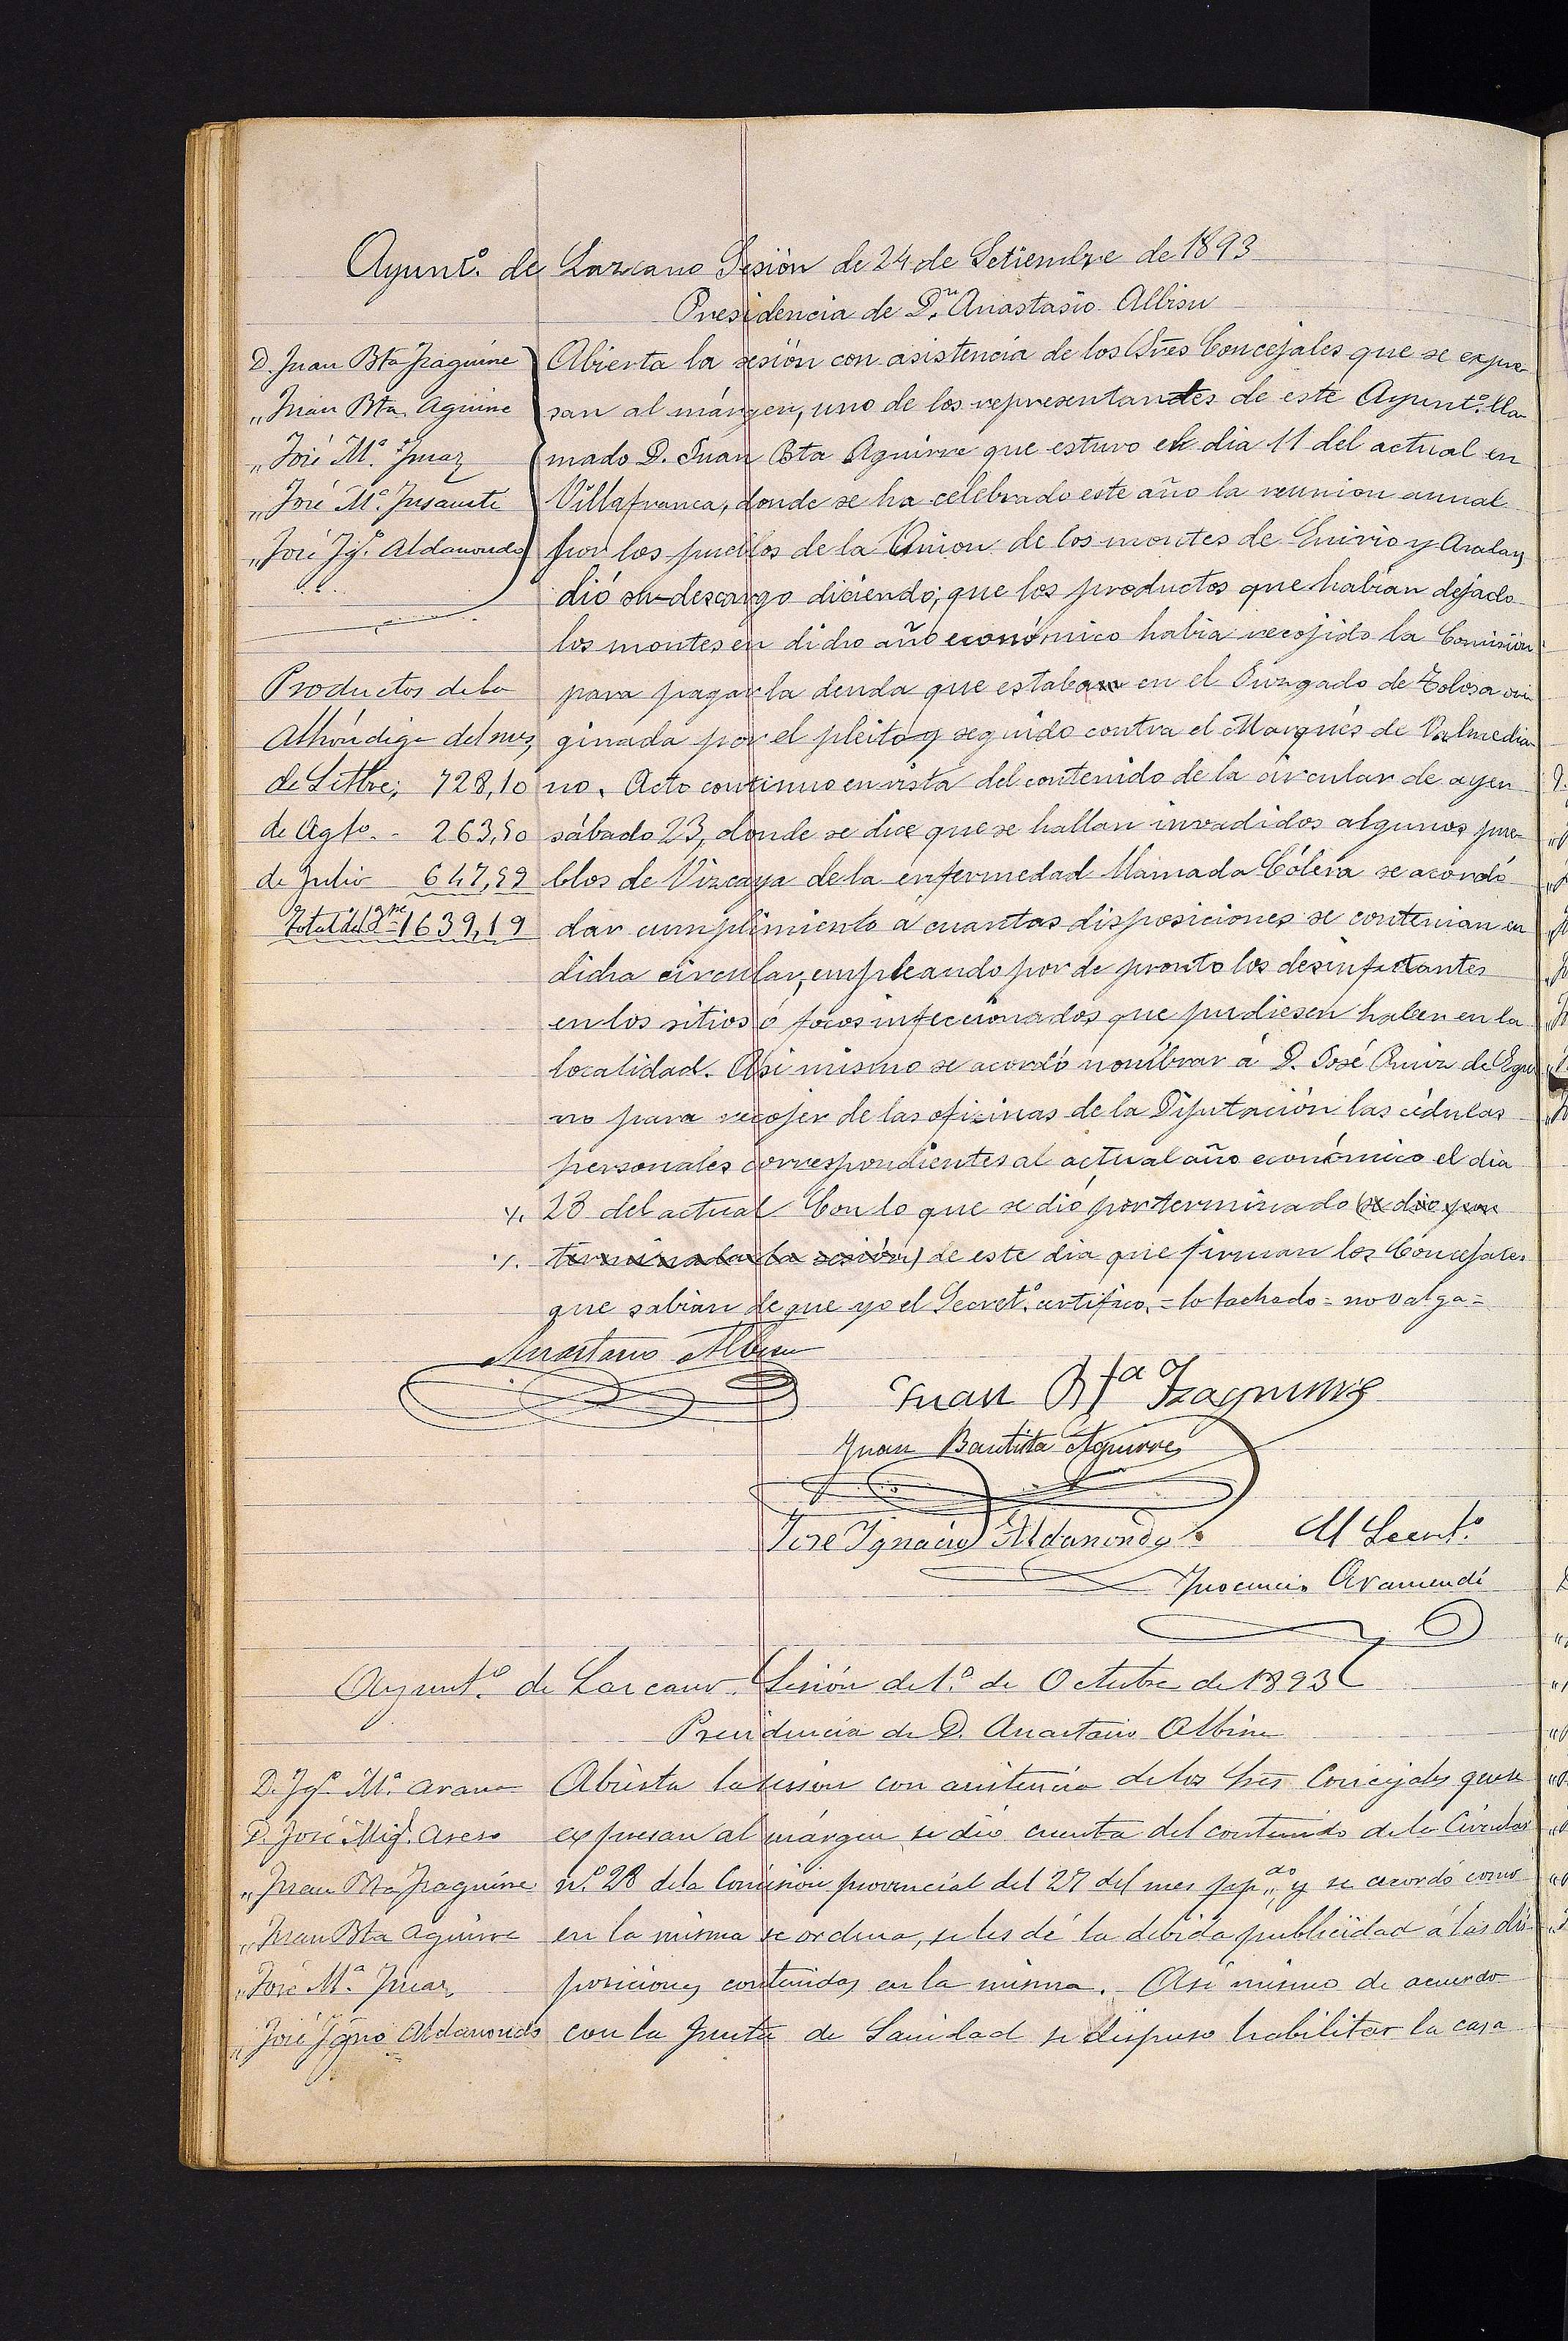 Ayunt.º de Lazcano Sesión de 24 de Setiembre de 1893
Presidencia de D.n Anastasio Albisu
D. Juan Bta Izaguirre
„ Juan Bta Aguirre
„ José M.ª
„ José M.ª
„ José Ig.º Aldanondo
Abierta la sesión con asistencia de los Sres Concejales que se expre
san al márgen, uno de los representantes de este Ayunt.º lla
mado D. Juan Bta Aguirre que estuvo el dia 11 del actual en
Villafranca, donde se ha celebrado este año la reunion annal
por los pueblos de la Union de los montes de Enirio y Aralar,
dió su descargo diciendo; que los productos que habian dejado
los montes en dicho año económico habia recojido la Comisión
para pagar la deuda que estaban en el Juzgado de Tolosa ori
ginada por el pleito y seguido contra el Marqués de Valmedia
no. Acto continuo en vista del contenido de la circular de ayer
sábado 23, donde se dice que se hallan invadidos algunos pue-
blos de Vizcaya de la enfermedad llamada Cólera se acordó
dar cumplimiento a cuantas disposiciones se contenian en
dicha circular, empleando por de pronto los desinfectantes
en los sitios ó focos infeccionados que pudiesen haber en la
localidad. Asi mismo se acordó nombrar á D. José Ruiz de Egu
no para recojer de las ofizinas de la Diputación las cédulas
personales correspondientes al actual año económico el dia
Productos de la
Alhóndiga del mes
de Setbre; 728,10
de Agto. - 263,50
de Julio 647,59
Total del 3.ne 1639,19
28 del actual Con lo que se dió por terminado (se dio por
terminada la sesión) de este dia que firman los Concejales
que sabian de que yo el Secret.º certifico. = lo tachado = no valga =
Anastasio Albisu
Juan Bta Izaguirre
Juan Bautista Aguirre
Jose Ignacio Aldanondo
El Secret.º
Inocencio Aramendi
Ayunt.º de Lazcano. Sesión del 1.º de Octubre de 1893
Presidencia de D. Anastasio Albisu
D. Ig.º M.ª Arana
D. José Mig.l Aseso
„ Juan Bta Izaguirre
„ Juan Bta Aguirre
„ José M.ª
„ José Igno Aldanondo
Abierta la sesion con asistencia de los Sres Concejales que se
expresan al márgen se dió cuenta del contenido de la Circular
n.º 28 de la Comisión provincial del 27 del mes pp.do y se acordó como
en la misma se ordena, se les dé la debida publicidad á las dis
posiciones contenidas en la misma. Asi mismo de acuerdo
con la Junta de Sanidad se dispuso habilitar la casa